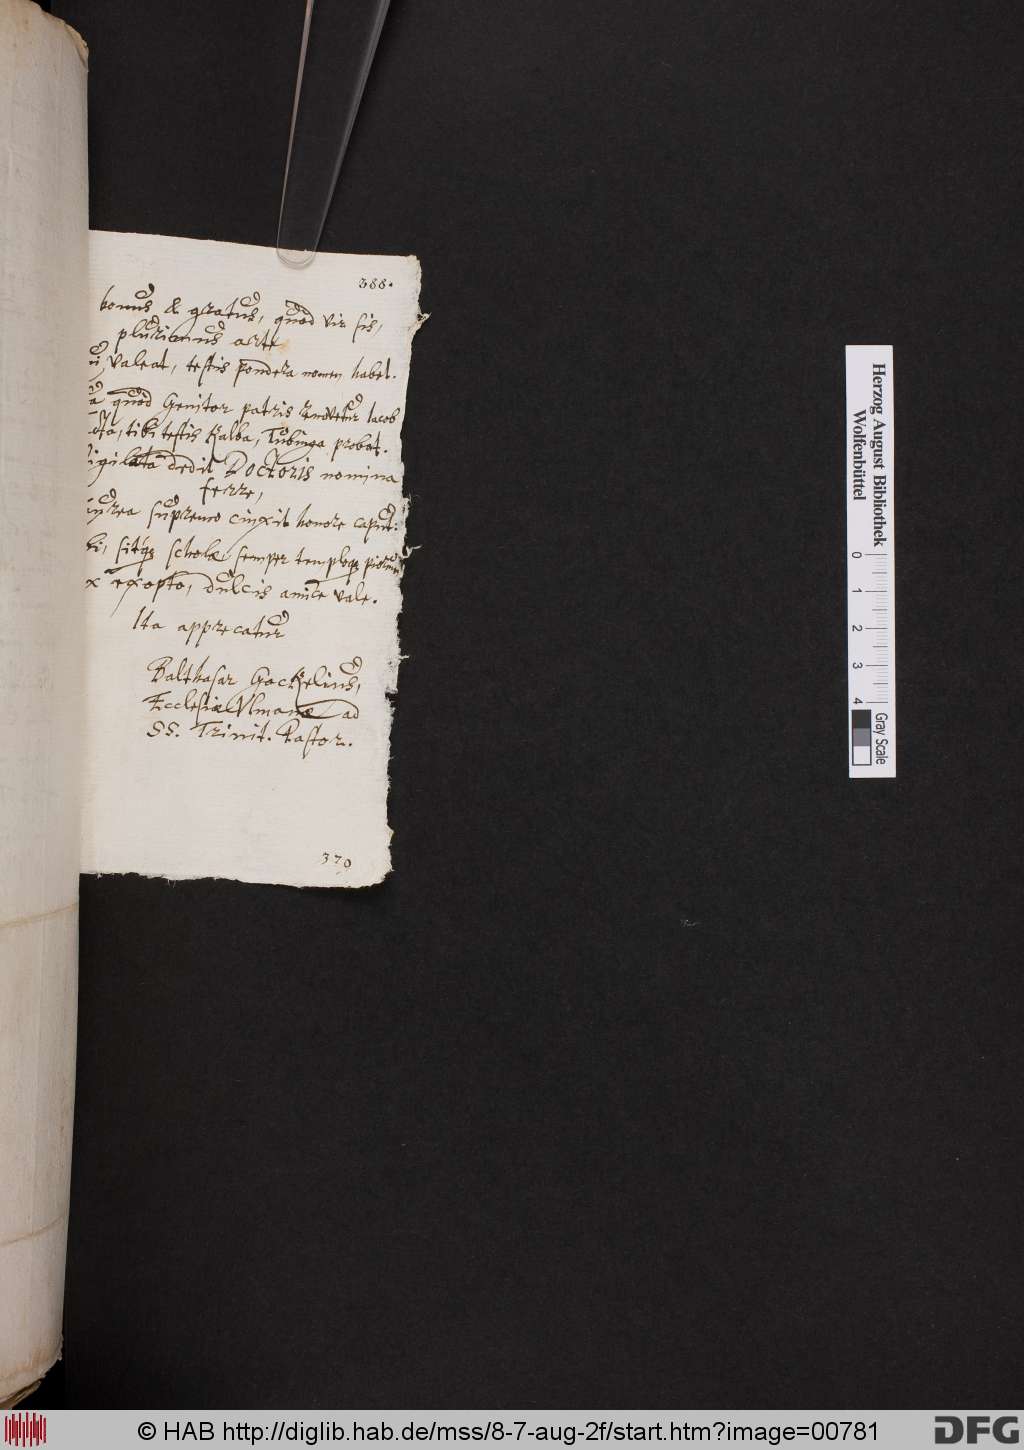 388.
bonus & gratus, quod vir sis,
plurimus arte
valeat, testis pondera nomen habet.
quod Genitor patris removetur Iacob
tibi testis Kalba, Tubinga probat.
dedit Doctoris nomina
ferre,
supremo cinxit honore caput.
sitq; scholæ semper temploq;
exopto, dulcis amice vale.
Ita apprecatur
Balthasar Gockelius,
Ecclesiæ Ulmanæ ad
SS. Trinit. Pastor.
370
Herzog August Bibliothek
Wolfenbüttel
0 1 2 3 4
Gray Scale
© HAB http://diglib.hab.de/mss/8-7-aug-2f/start.htm?image=00781
DFG